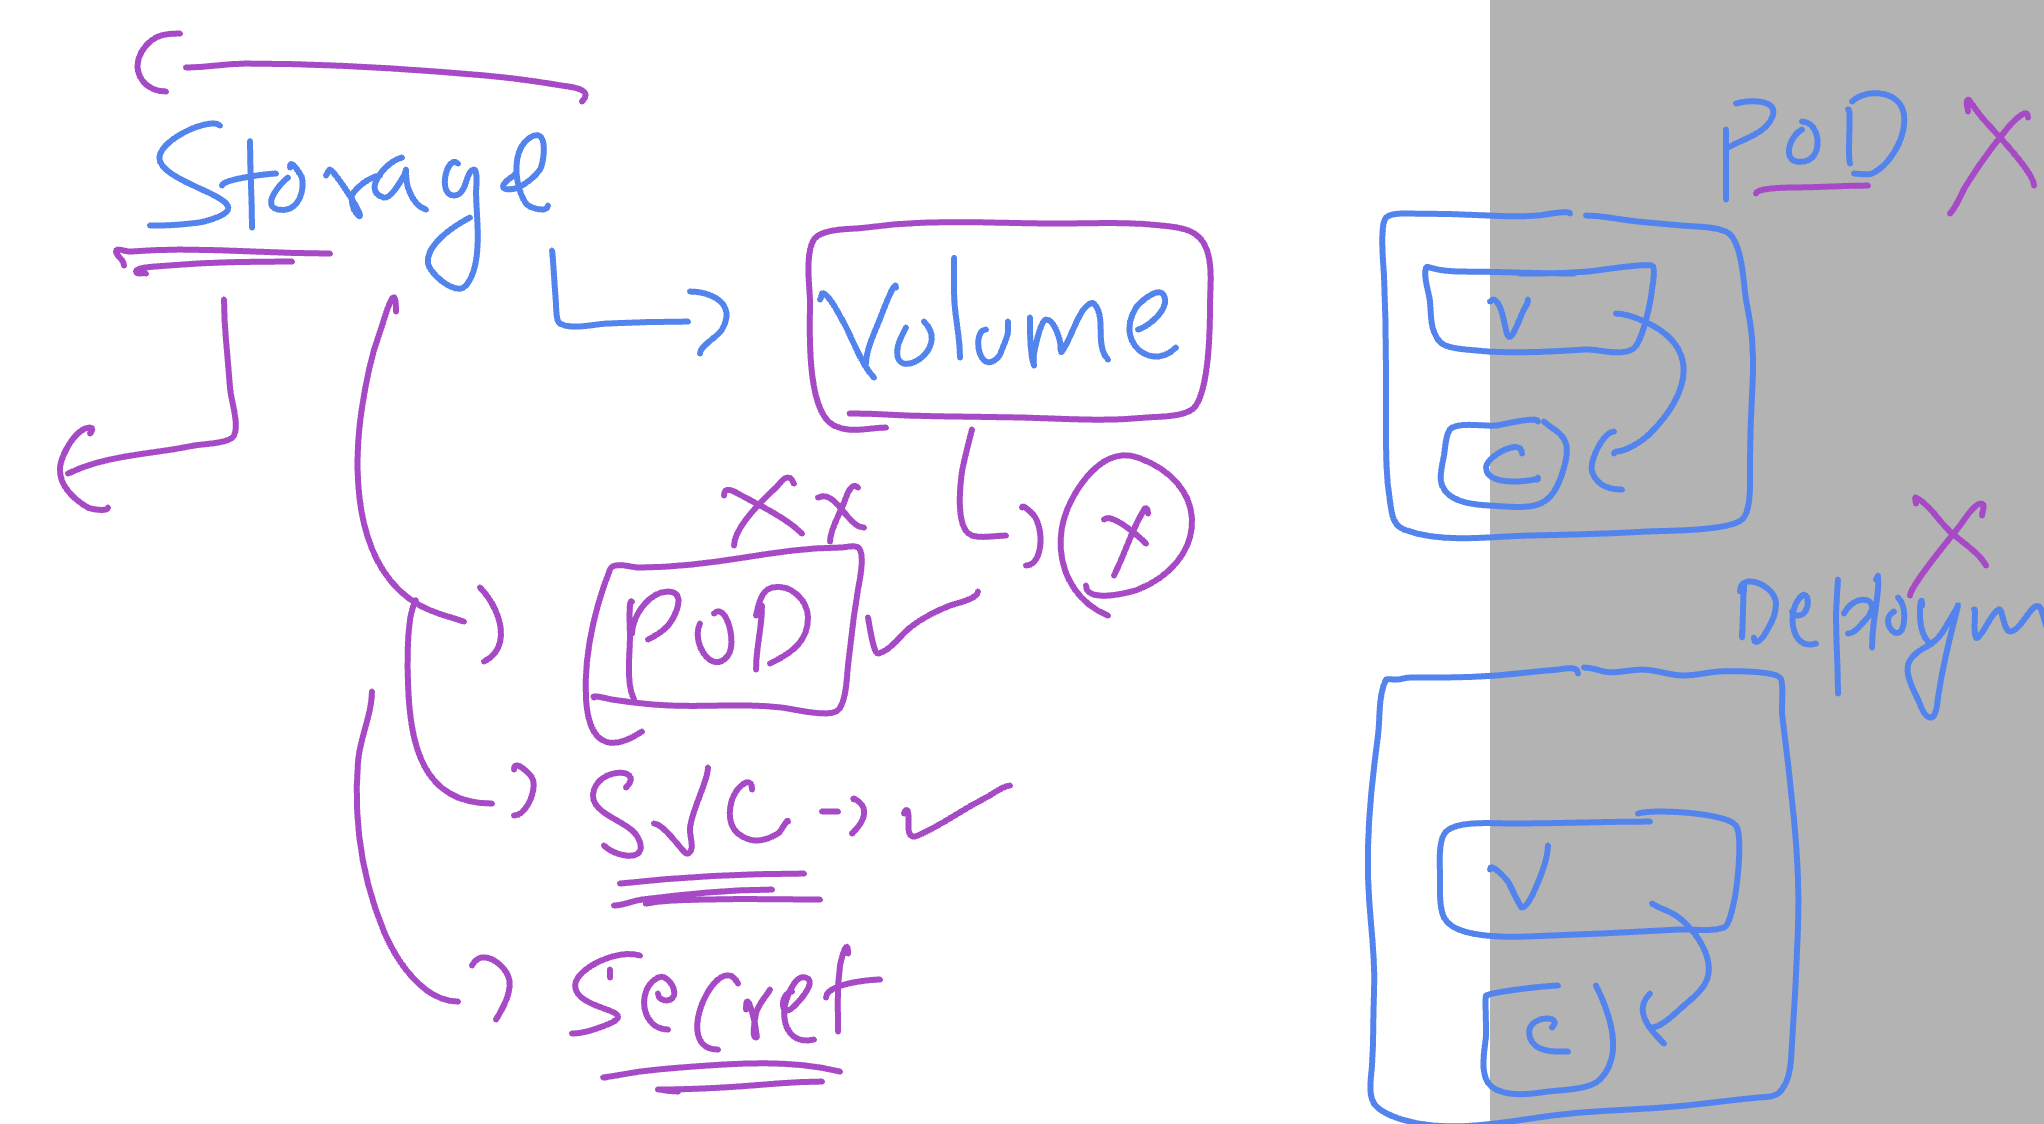 Storage
Volume
X
X X
POD
SVC → ✓
Secret
POD X
V
C
X
Deploym
V
C